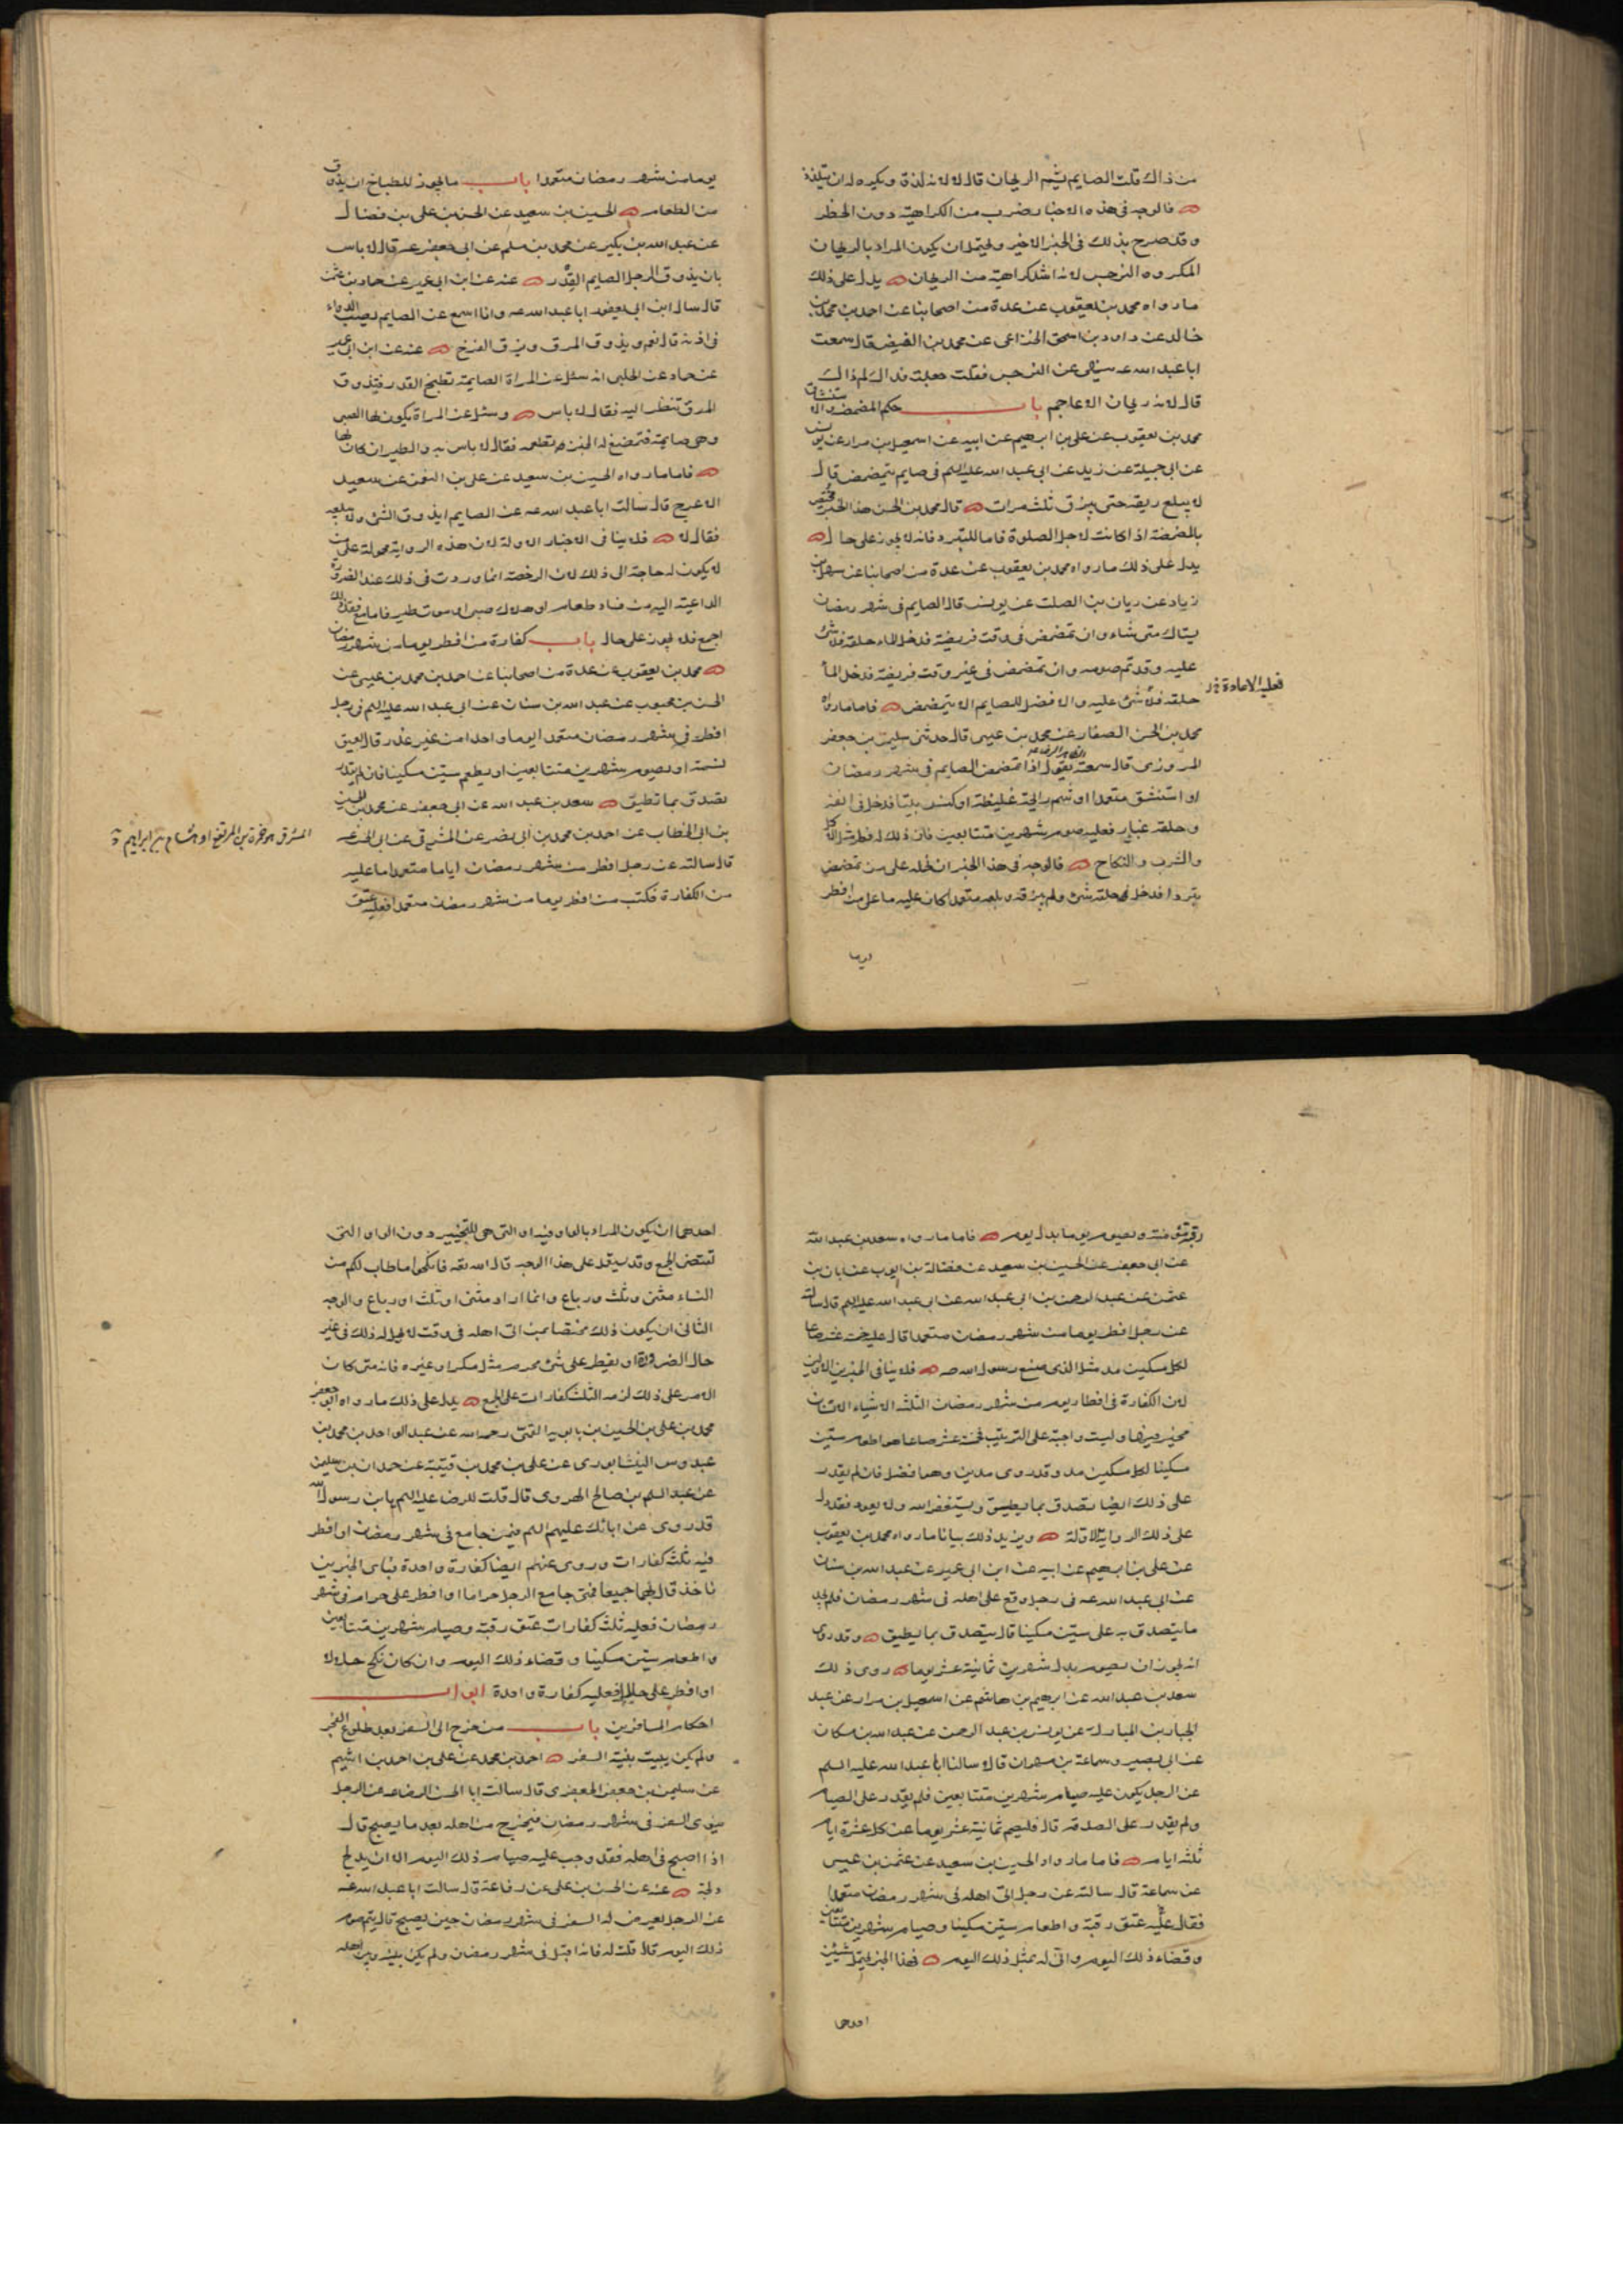 من ذاك قلت الصايم يشم الريحان قال لا لانه لذة ويكره له ان يتلذذ
فالوجه فى هذه الاخبار ضرب من الكراهية دون الحظر
وقد صرح بذلك فى الخبر الاخير ويحتمل ان يكون المراد بالريحان
المكروه النرجس لانه اشد كراهية من الريحان يدل على ذلك
ما رواه محمد بن يعقوب عن عدة من اصحابنا عن احمد بن محمد بن
خالد عن داود بن اسحق الحذاء عن محمد بن الفيض قال سمعت
ابا عبد الله عه ينهى عن النرجس فقلت جعلت فداك لم ذاك
قال لانه ريحان الاعاجم باب حكم المضمضة والاستنشاق
محمد بن يعقوب عن على بن ابرهيم عن ابيه عن اسمعيل بن مرار عن يونس
عن ابى جميلة عن زيد عن ابى عبد الله عليه السلم فى صايم يتمضمض قال
لا يبلع ريقه حتى يبزق ثلث مرات قال محمد بن الحسن هذا الخبر مختص
بالمضمضة اذا كانت لاجل الصلوة فاما للتبرد فانه لا يجوز على حال
يدل على ذلك ما رواه محمد بن يعقوب عن عدة من اصحابنا عن سهل بن
زياد عن ريان بن الصلت عن يونس قال الصايم فى شهر رمضان
يستاك متى شاء وان تمضمض فى وقت فريضة فدخل الماء حلقه فلا شئ
عليه وقد تم صومه وان تمضمض فى غير وقت فريضة فدخل الماء
فعليه الاعادة
حلقه فلا شئ عليه والافضل للصايم الا يتمضمض فاما ما رواه
محمد بن الحسن الصفار عن محمد بن عيسى قال حدثنى سليمن بن جعفر
المروزى قال سمعته يقول اذا تمضمض الصايم فى شهر رمضان
او استنشق متعمدا او شم رايحة غليظة او كنس بيتا فدخل فى انفه
وحلقه غبار فعليه صوم شهرين متتابعين فان ذلك له فطر مثل الاكل
والشرب والنكاح فالوجه فى هذا الخبر ان نحمله على من تمضمض
تبردا فدخل فى حلقه شئ ولم يبزقه وبلعه متعمدا كان عليه ما على من افطر
يوما
يوما من شهر رمضان متعمدا باب ما يجوز للطباخ ان يذوق
من الطعام الحسين بن سعيد عن الحسن بن على بن فضال
عن عبد الله بن بكير عن محمد بن مسلم عن ابى جعفر عه قال لا باس
بان يذوق الرجل الصايم القدر عنه عن ابن ابى عمير عن حماد بن عثمن
قال سال ابن ابى يعفور ابا عبد الله عه وانا اسمع عن الصايم يصب الدواء
فى اذنه قال نعم ويذوق المرق ويزق الفرخ عنه عن ابن ابى عمير
عن حماد عن الحلبى انه سئل عن المراة الصايمة تطبخ القدر فتذوق
المرق تنظر اليه فقال لا باس وسئل عن المراة يكون لها الصبى
وهى صايمة فتمضغ له الخبز تطعمه فقال لا باس به والطير ان كان لها
فاما ما رواه الحسين بن سعيد عن على بن النعمن عن سعيد
الاعرج قال سالت ابا عبد الله عه عن الصايم ايذوق الشئ ولا يبلعه
فقال لا فلا ينافى الاخبار الاولة لان هذه الرواية محمولة على من
لا يكون له حاجة الى ذلك لان الرخصة انما وردت فى ذلك عند الضرورة
الداعية اليه من فساد طعام او هلاك صبى او موت طير فاما مع فقد ذلك
اجمع فلا يجوز على حال باب كفارة من افطر يوما من شهر رمضان
محمد بن يعقوب عن عدة من اصحابنا عن احمد بن محمد بن عيسى عن
الحسن بن محبوب عن عبد الله بن سنان عن ابى عبد الله عليه السلم فى رجل
افطر فى شهر رمضان متعمدا يوما واحدا من غير عذر قال يعتق
نسمة او يصوم شهرين متتابعين او يطعم ستين مسكينا فان لم يقدر
تصدق بما تطيق سعد بن عبد الله عن ابى جعفر عن محمد بن الحسين
بن ابى الخطاب عن احمد بن محمد بن ابى نصر عن المشرقى عن ابى الحسن عه
قال سالته عن رجل افطر من شهر رمضان اياما متعمدا ما عليه
من الكفارة فكتب من افطر يوما من شهر رمضان متعمدا فعليه عتق
رقبة مؤمنة ويصوم يوما بدل يوم فاما ما رواه سعد بن عبد الله
عن ابى جعفر عن الحسين بن سعيد عن فضالة بن ايوب عن ابان بن
عثمن عن عبد الرحمن بن ابى عبد الله عن ابى عبد الله عليه السلم قال سالته
عن رجل افطر يوما من شهر رمضان متعمدا قال عليه خمسة عشر صاعا
لكل مسكين مد مثل الذى صنع رسول الله صه فلا ينافى الخبرين الاولين
لان الكفارة فى افطار يوم من شهر رمضان الثلثة الاشياء الانسان
مخير فيها وليست واجبة على الترتيب فخمسة عشر صاعا هو اطعام ستين
مسكينا لكل مسكين مد وقد روى مدين وهما افضل فان لم يقدر
على ذلك ايضا تصدق بما يطيق ويستغفر الله ولا يعود فقد دل
على ذلك الرواية الاولة ويزيد ذلك بيانا ما رواه محمد بن يعقوب
عن على بن ابرهيم عن ابيه عن ابن ابى عمير عن عبد الله بن سنان
عن ابى عبد الله عه فى رجل وقع على اهله فى شهر رمضان فلم يجد
ما يتصدق به على ستين مسكينا قال يتصدق بما يطيق وقد روى
انه يجوز ان يصوم بدل شهرين ثمانية عشر يوما روى ذلك
سعد بن عبد الله عن ابرهيم بن هاشم عن اسمعيل بن مرار عن عبد
الجبار بن المبارك عن يونس بن عبد الرحمن عن عبد الله بن مسكان
عن ابى بصير وسماعة بن مهران قالا سالنا ابا عبد الله عليه السلم
عن الرجل يكون عليه صيام شهرين متتابعين فلم يقدر على الصيام
ولم يقدر على الصدقة قال فليصم ثمانية عشر يوما عن كل عشرة ايام
ثلثة ايام فاما ما رواه الحسين بن سعيد عن عثمن بن عيسى
عن سماعة قال سالته عن رجل اتى اهله فى شهر رمضان متعمدا
فقال عليه عتق رقبة واطعام ستين مسكينا وصيام شهرين متتابعين
وقضاء ذلك اليوم وانى له بمثل ذلك اليوم فهذا الخبر يحتمل شيئين
احدهما
احدهما ان يكون المراد بالواو فيه او التى هى للتخيير دون الواو التى
تقتضى الجمع وقد على هذا الوجه قال الله تعه فانكحوا ما طاب لكم من
النساء مثنى وثلث ورباع وانما اراد مثنى او ثلث او رباع والوجه
الثانى ان يكون ذلك مختصا بمن اتى اهله فى وقت لا يحل له ذلك فى غير
حال الضرورة او يفطر على شئ محرم مثل مسكر او غيره فانه متى كان
الامر على ذلك لزمه الثلث كفارات على الجمع يدل على ذلك ما رواه ابو جعفر
محمد بن على بن الحسين بن بابويه القمى رحمه الله عن عبد الواحد بن محمد بن
عبدوس النيشابورى عن على بن محمد بن قتيبة عن حمدان بن سليمن
عن عبد السلم بن صالح الهروى قال قلت للرضا عليه السلم يا بن رسول الله
قد روى عن ابائك عليهم السلم فيمن جامع فى شهر رمضان او افطر
فيه ثلث كفارات وروى عنهم ايضا كفارة واحدة فباى الخبرين
ناخذ قال بهما جميعا فمتى جامع الرجل حراما او افطر على حرام فى شهر
رمضان فعليه ثلث كفارات عتق رقبة وصيام شهرين متتابعين
واطعام ستين مسكينا وقضاء ذلك اليوم وان كان نكح حلالا
او افطر على حلال فعليه كفارة واحدة ابواب
احكام المسافرين باب من خرج الى السفر بعد طلوع الفجر
ولم يكن يبيت بنية السفر احمد بن محمد عن على بن احمد بن اشيم
عن سليمن بن جعفر الجعفرى قال سالت ابا الحسن الرضا عه عن الرجل
ينوى السفر فى شهر رمضان فيخرج من اهله بعد ما يصبح قال
اذا اصبح فى اهله فقد وجب عليه صيام ذلك اليوم الا ان يدلج
دلجة عنه عن الحسن بن على عن رفاعة قال سالت ابا عبد الله عه
عن الرجل يعرض له السفر فى شهر رمضان حين يصبح قال يتم صوم
ذلك اليوم قال قلت له فانه اقبل فى شهر رمضان ولم يكن بينه وبين اهله